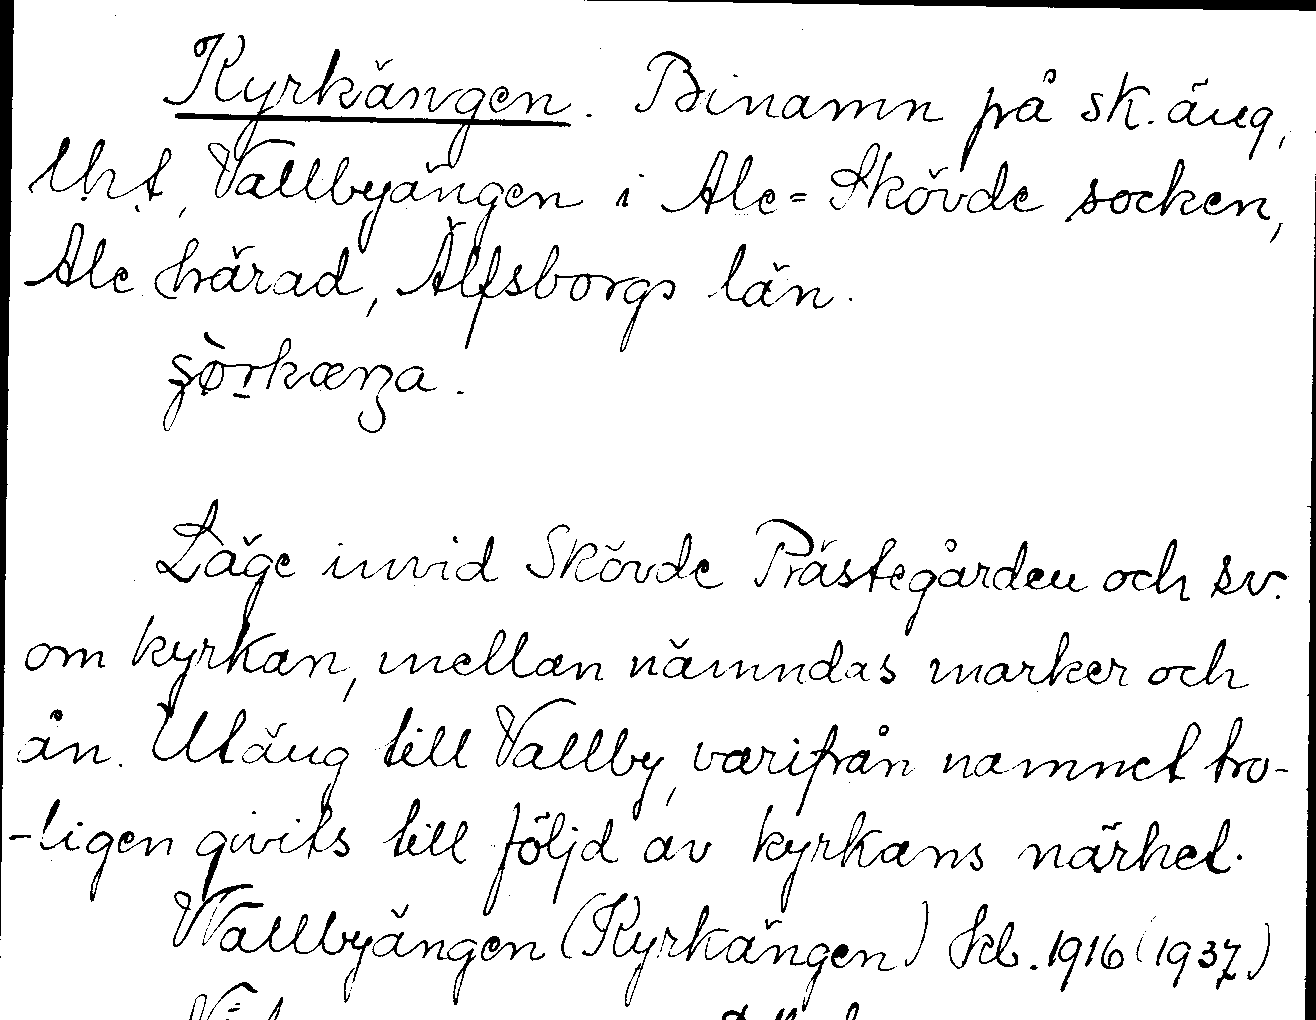 Kyrkängen. Binamn på sk. äng,
Vallbyängen i Ale-Skövde socken,
Ale härad, Älfsborgs län.
Läge invid Skövde Prästegården och sv.
om kyrkan, mellan nämndas marker och
ån. Utäng till Vallby, varifrån namnet tro-
-ligen givits till följd av kyrkans närhet.
Wallbyängen (Kyrkängen) Skb. 1916 (1937)